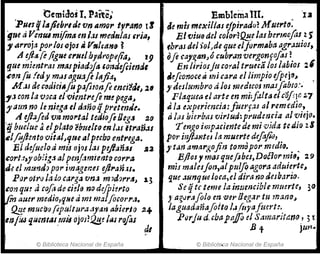 Gemidos I. Parte,
Pues q̃ la fiebre de vn amor tyrano 18
que à Venus misma en las medulas cria,
y arroja por los ojos á Vulcano
A esta se sigue cruel hydropesia, 19
que mientras mas piadosa condesciende
con su sed y mas agua se fia,
Mas de codicia su passion se enciẽde, 20
y con la voca el vientre se me paga,
y aun no le niega el daño q̃ pretende.
A essa sed vn mortal tedio se llega 20
q̃ buelue à el plato buelto en las estrañas
el sustento vital, que al pecho entrega.
El desuelo á mis ojos las pestañas 22
cort: y obliga al pensamiento corra
de el mundo por imagenes estrañas.
Por otra lo carga vna modorra, 23
con que à cosa de cielo no despierto
sin auer medio, que à mi mal socorra.
Que mucho sepultura ayan abierto 24
en sus quentas mis ojos? Que las rosas
de
© Biblioteca Nacional de España
Emblema III. 12
de mis mexillas espirado? Muerto.
El viuo del color? Que las hermosas 25
ebras del sol, de que el formaba agrauios,
ò se caygan, ó cubran vergonçosas?
En lirios su coral trueca los labios 26
desconoce á mi cara el limpio espejo,
y deslumbro á los medicos mas sabios.
Flaqueza el arte en mi: falta el cõsejo 27
à la experiencia: fuerças al remedio,
á las hierbas virtud: prudencia al viejo.
Tengo impaciente de mi vida tedio 28
por instantes la muerte desasio,
y tan amargo fin tomo por medio.
Estos y mas que sabes, Doctor mio, 29
mis males son, al pulso agora aduierte,
que aunque loca, el dira no desbario.
Se q̃ te teme la inuencible muerte, 30
y agora solo en ver llegar tu mano,
la guadaña solto la suya fuerte.
Por su d. cha passo el Samaritano, 31
B 4
jun-
© Biblioteca Nacional de España